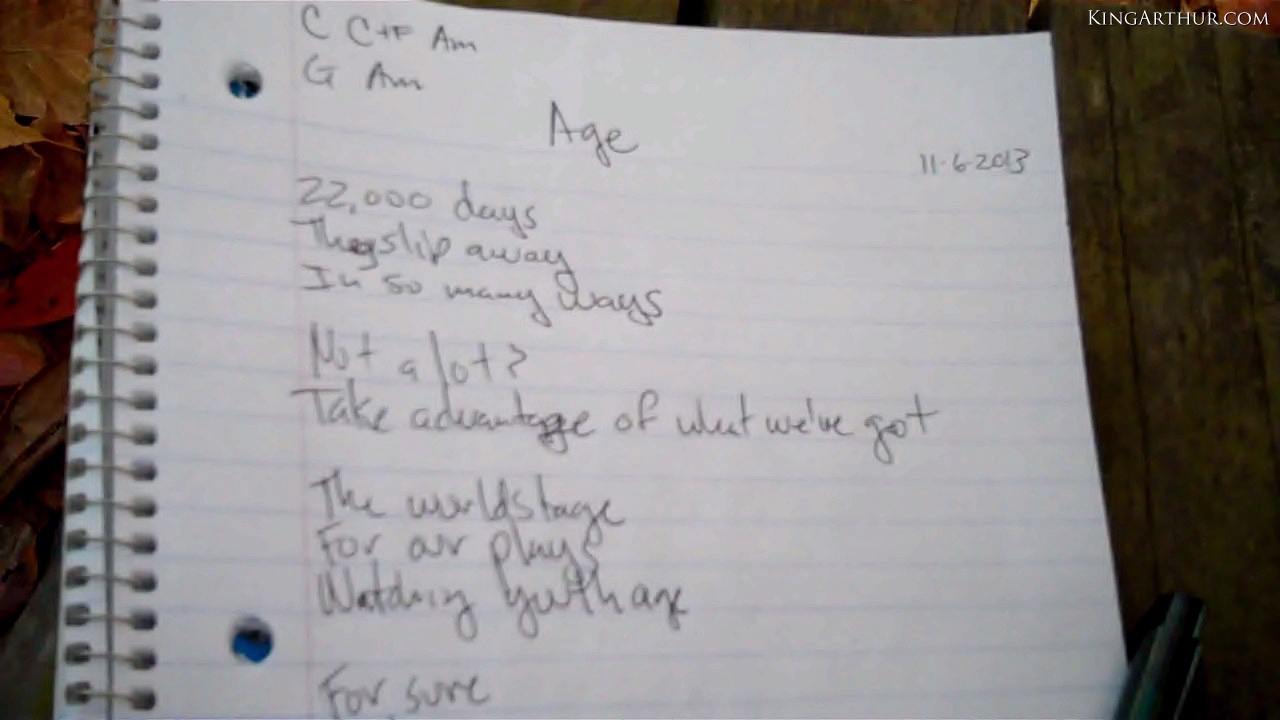 KINGARTHUR.COM
C C+F Am
G Am
Age
11-6-2013
22,000 days
They slip away
In so many ways
Not a lot?
Take advantage of what we've got
The world stage
For our plays
Watching Youth age
For sure